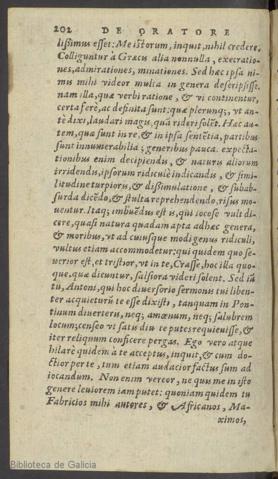 202 DE ORATORE
lißimus esset: Me istorum, inquit, nihil credere.
Colliguntur à Græcis alia nonnulla, execratio-
nes, admirationes, minationes. Sed hæc ipsa ni-
mis mihi videor multa in genera descripsisse.
nam illa, quæ verbi ratione, & vi continentur,
certa ferè, ac definita sunt: quæ plerunq;, vt an-
tè dixi, laudari magis, quā rideri solēt. Hæc au-
tem, quæ sunt in re, & in ipsa sentētia, partibus
sunt innumerabilia; generibus pauca. expecta-
tionibus enim decipiendis, & naturis aliorum
irridendis, ipsorum ridiculè indicandis, & simi-
litudine turpioris, & dissimulatione, & subab-
surda dicēdo, & stulta reprehendendo, risus mo-
uentur. Itaq; imbuēdus est is, qui iocosè vult di-
cere, quasi natura quadam apta ad hæc genera,
& moribus, vt ad cuiusque modi genus ridiculi,
vultus etiam accommodetur: qui quidem quo se-
uerior est, et tristior, vt in te, Crasse, hoc illa quo-
que, quæ dicuntur, salsiora videri solent. Sed iā
tu, Antoni, qui hoc diuersorio sermonis mei liben-
ter acquieturū te esse dixisti, tanquam in Pon-
tinum diuerteris, neq; amœnum, neq; salubrem
locum; censeo vt satis diu te putes requieuisse, &
iter reliquum conficere pergas. Ego vero atque
hilarè quidem à te acceptus, inquit, & cum do-
ctior per te, tum etiam audacior factus sum ad
iocandum. Non enim vereor, ne quis me in isto
genere leuiorem iam putet: quoniam quidem tu
Fabricios mihi autores, & Africanos, Ma-
ximos,
Biblioteca de Galicia